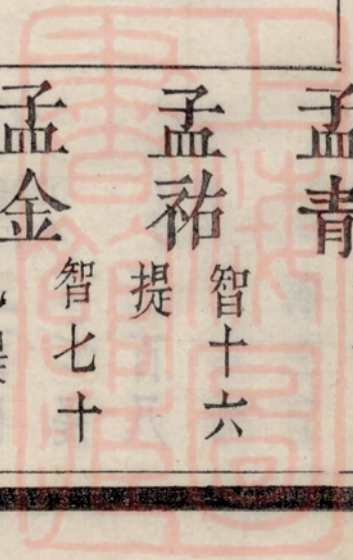 孟青
孟祐
智十六
提
孟金
智七十